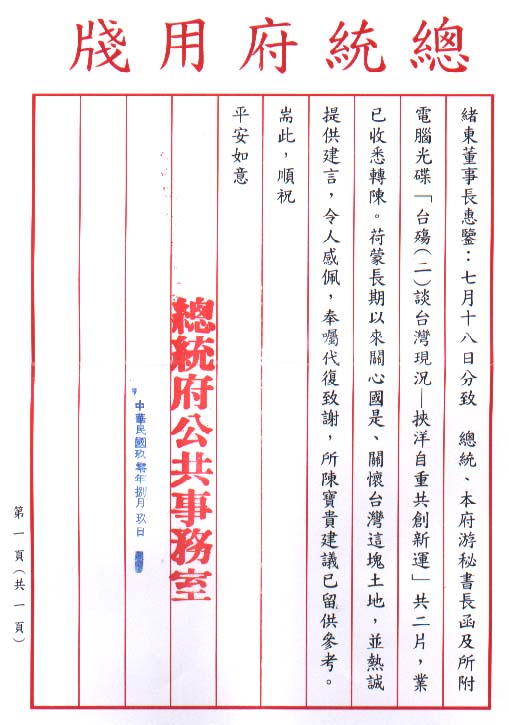 總統府用牋
緒東董事長惠鑒：七月十八日分致　總統、本府游秘書長函及所附
電腦光碟「台殤(二)談台灣現況—挾洋自重共創新運」共二片，業
已收悉轉陳。荷蒙長期以來關心國是、關懷台灣這塊土地，並熱誠
提供建言，令人感佩，奉囑代復致謝，所陳寶貴建議已留供參考。
耑此，順祝
平安如意
總統府公共事務室
中華民國玖零年捌月玖日
第一頁(共一頁)